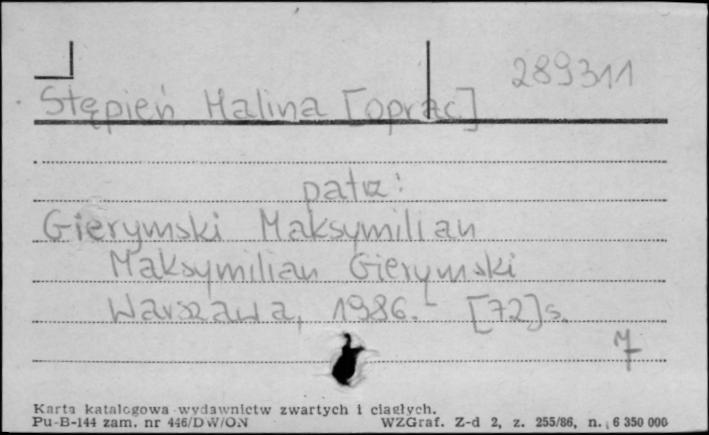 289311
Stępień Halina [oprac]
patrz:
Gierymski Maksymilian
Maksymilian Gierymski
Warszawa, 1986.- [72]s.
7
Karta katalogowa wydawnictw zwartych i ciągłych.
Pu-B-144 zam. nr 446/DW/ON WZGraf. Z-d 2, z. 255/86, n. 6 350 000